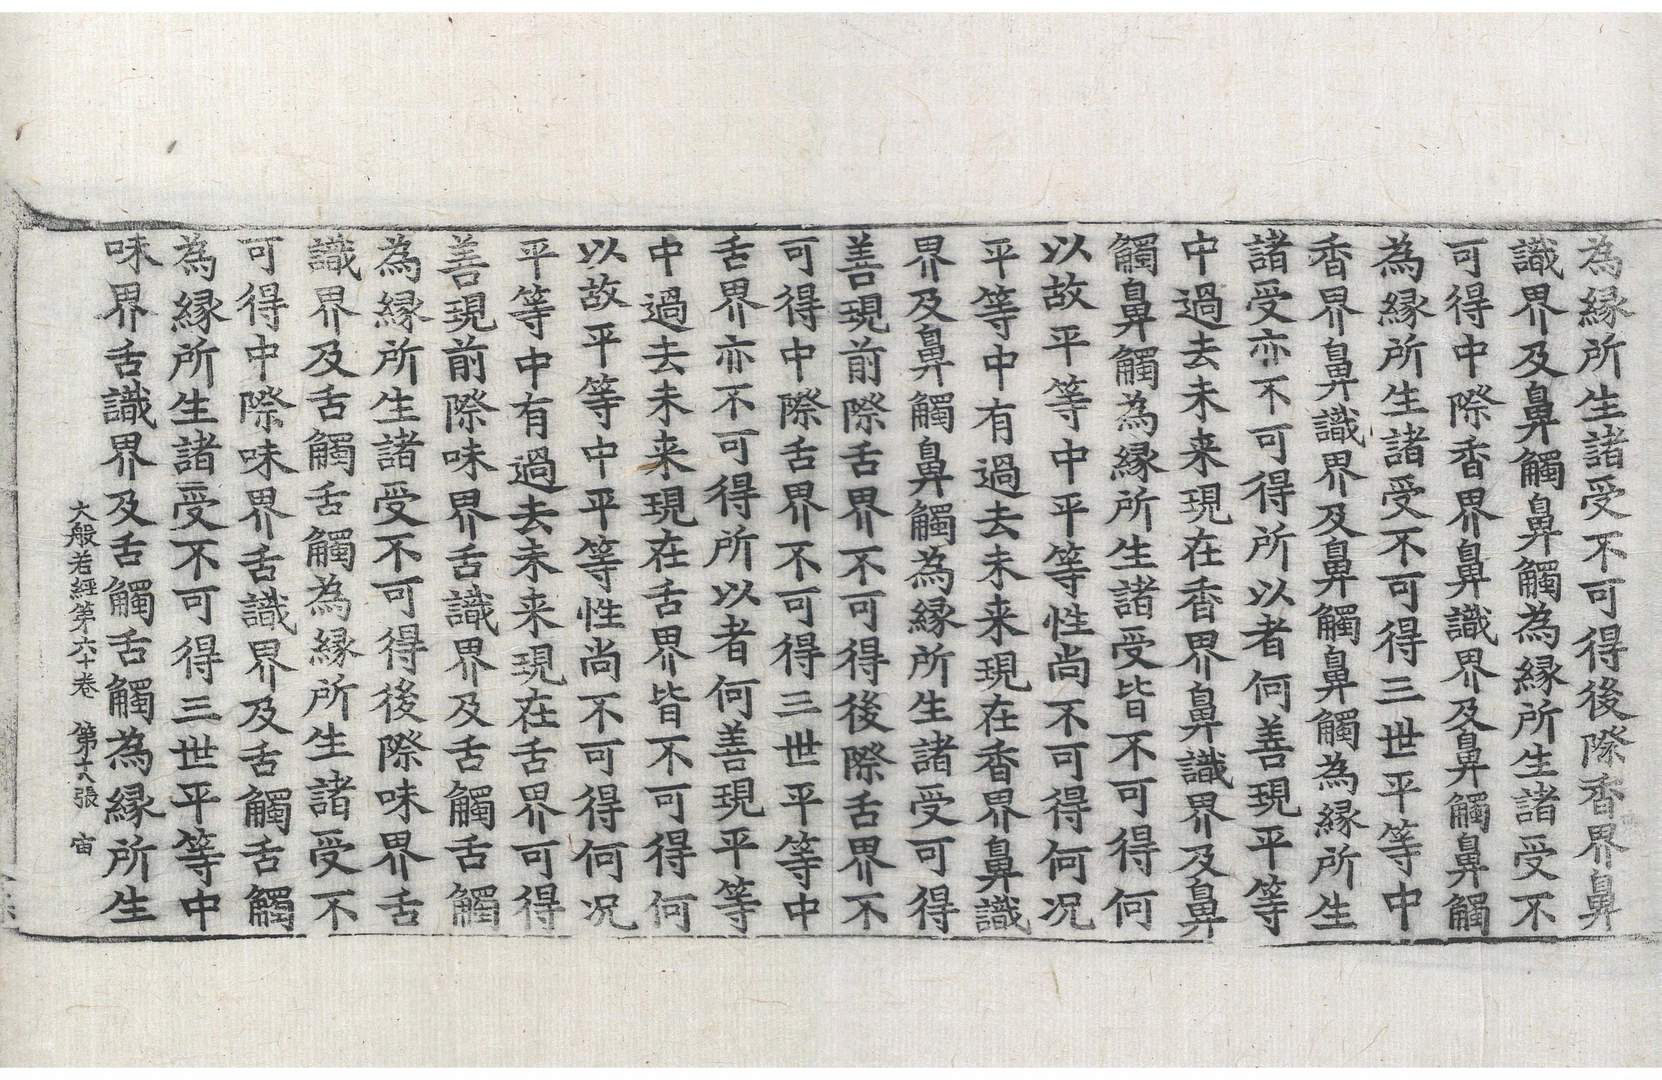 為縁所生諸受不可得後際香界鼻
識界及鼻觸鼻觸為縁所生諸受不
可得中際香界鼻識界及鼻觸鼻觸
為縁所生諸受不可得三世平等中
香界鼻識界及鼻觸鼻觸為縁所生
諸受亦不可得所以者何善現平等
中過去未来現在香界鼻識界及鼻
觸鼻觸為縁所生諸受皆不可得何
以故平等中平等性尚不可得何况
平等中有過去未来現在香界鼻識
界及鼻觸鼻觸為縁所生諸受可得
善現前際舌界不可得後際舌界不
可得中際舌界不可得三世平等中
舌界亦不可得所以者何善現平等
中過去未来現在舌界皆不可得何
以故平等中平等性尚不可得何况
平等中有過去未来現在舌界可得
善現前際味界舌識界及舌觸舌觸
為縁所生諸受不可得後際味界舌
識界及舌觸舌觸為縁所生諸受不
可得中際味界舌識界及舌觸舌觸
為縁所生諸受不可得三世平等中
味界舌識界及舌觸舌觸為縁所生
大般若經第六十卷 第十八張 宙